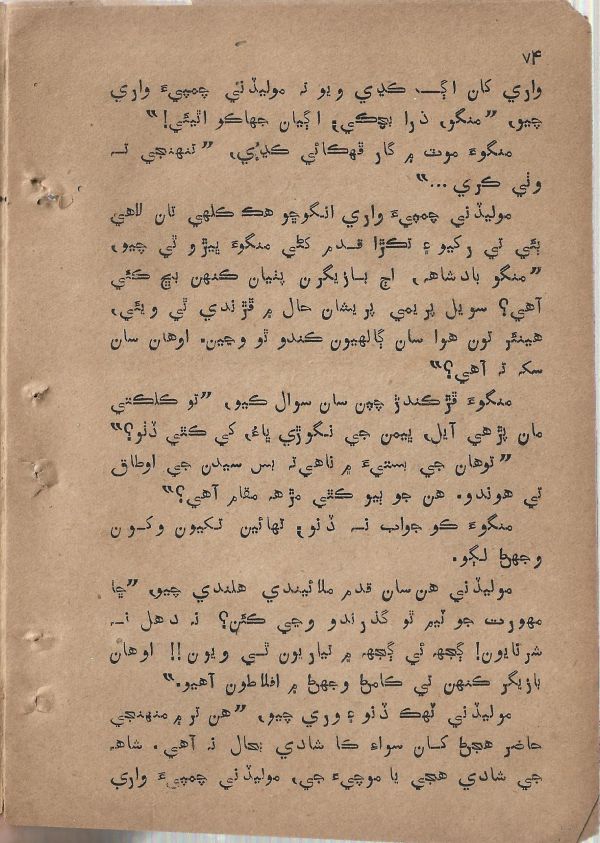 ۷۴
واري کان اڳ ڪڍي ويو تہ موليڏني چمپيءَ واري
چيو، ”منگو، ذرا بچڪي، اڳيان جهاڪو اٿيئي!“
منگوءَ موت ۾ گار ڦهڪائي ڪڍي، ”تنهنجي تہ
وٺي ڪري...“
موليڏني چمپيءَ واري انگوڇو هڪ ڪلهي تان لاهي
ٻئي تي رکيو ۽ تڪڙا قدم کڻي منگوءَ ڀيڙو ٿي چيو،
”منگو بادشاهہ، اڄ بازيگرن پٺيان ڪنهن بڇ ڪئي
آهي؟ سويل پريمي پريشان حال ۾ ڦرندي ٿي ويئي،
هينئر تون هوا سان ڳالهيون ڪندو ٿو وڃين. اوهان سان
سک تہ آهي؟“
منگوءَ ڦڙڪندڙ چپن سان سوال ڪيو، ”تو ڪلڪتي
مان پڙهي آيل، ڀيمن جي نگوڙي ڀاءُ، کي ڪٿي ڏٺو؟“
”توهان جي بستيءَ ۾ ناهي تہ بس سيدن جي اوطاق
تي هوندو. هن جو ٻيو ڪٿي مڙهہ مقام آهي؟“
منگوءَ ڪو جواب نہ ڏنو، تهائين تکيون وکون
وجهڻ لڳو.
موليڏني هن سان قدم ملائيندي هلندي چيو، ”ڇا
مهورت جو ٽيم ٿو گذرندو وڃي ڪٿن؟ نہ دهل نہ
شرنايون! ڳجهہ ئي ڳجهہ ۾ تياريون ٿي ويون!! اوهان
بازيگر ڪنهن تي ڪامڻ وجهڻ ۾ افلاطون آهيو.“
موليڏني ٽهڪ ڏنو ۽ وري چيو، ”هن تر ۾ منهنجي
حاضر هجڻ کان سواءِ ڪا شادي بحال نہ آهي. شاهہ
جي شادي هجي يا موچيءَ جي، موليڏني چمپيءَ واري